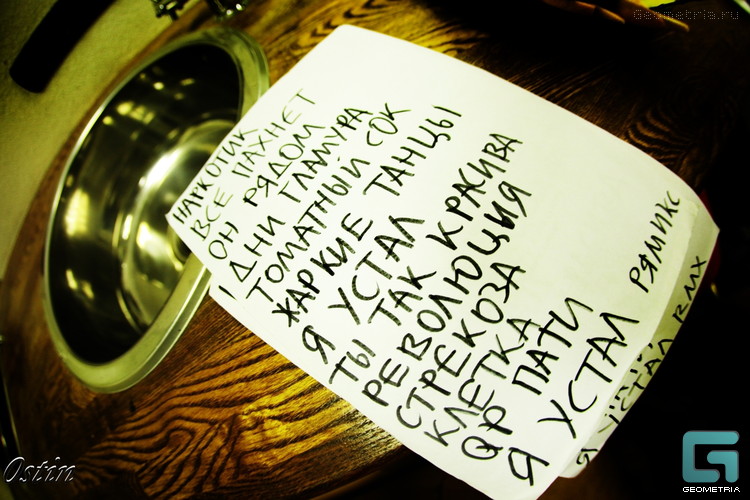 Geometria.ru
НАРКОТИК
ВСЕ ПАХНЕТ
ОН РЯДОМ
ДНИ ГЛАМУРА
ТОМАТНЫЙ СОК
ЖАРКИЕ ТАНЦЫ
Я УСТАЛ
ТЫ ТАК КРАСИВА
РЕВОЛЮЦИЯ
СТРЕКОЗА
КЛЕТКА
QP ПАТИ
Я УСТАЛ РЯМИКС
Я УСТАЛ RMX
Ostin
GEOMETRIA